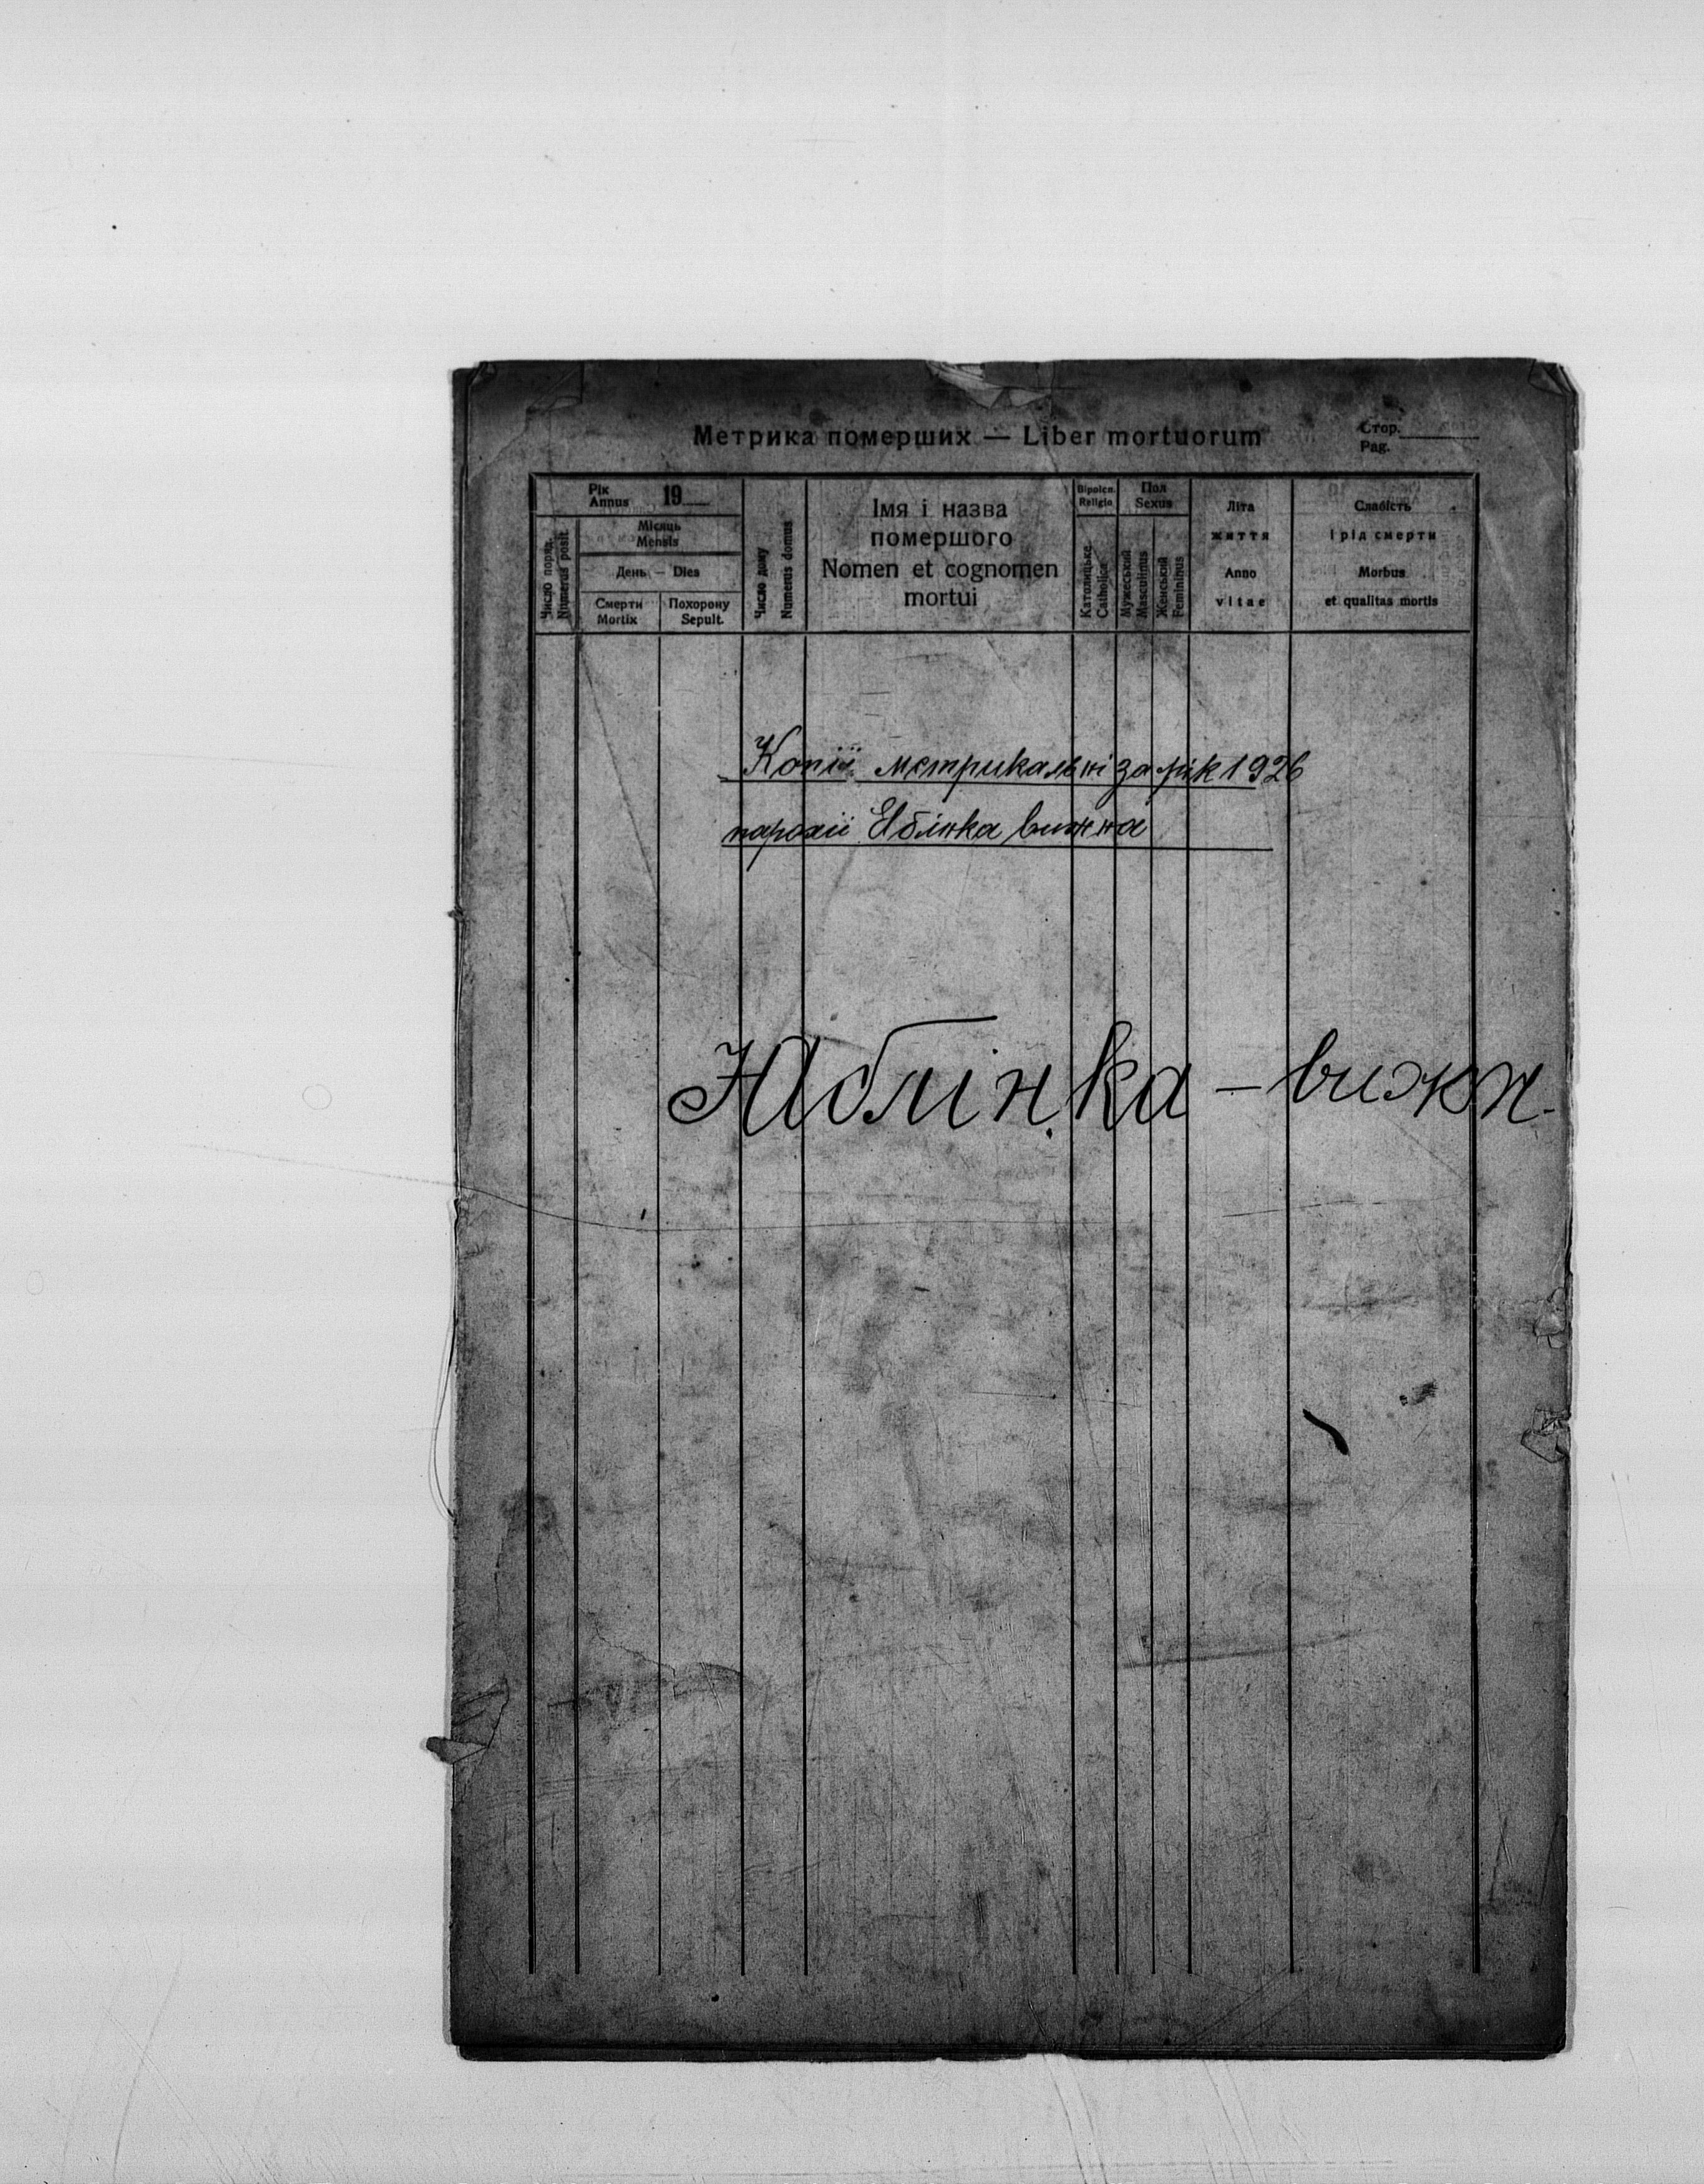 Метрика померших — Liber mortuorum
Стор.
Pag.
Рік
Annus 19
Місяць
Mensis
День — Dies
Смерти
Mortix
Похорону
Sepult.
Число поряд.
Numerus posit.
Число дому
Numerus domus
Імя і назва
помершого
Nomen et cognomen
mortui
Віроісп.
Religio
Католицьке
Catholica
Пол
Sexus
Мужеський
Masculinus
Женський
Femininus
Літа
життя
Anno
vitae
Слабість
і рід смерти
Morbus
et qualitas mortis
Копії метрикальні за рік 1926
парохії Яблінка вижна
Яблінка – вижн.